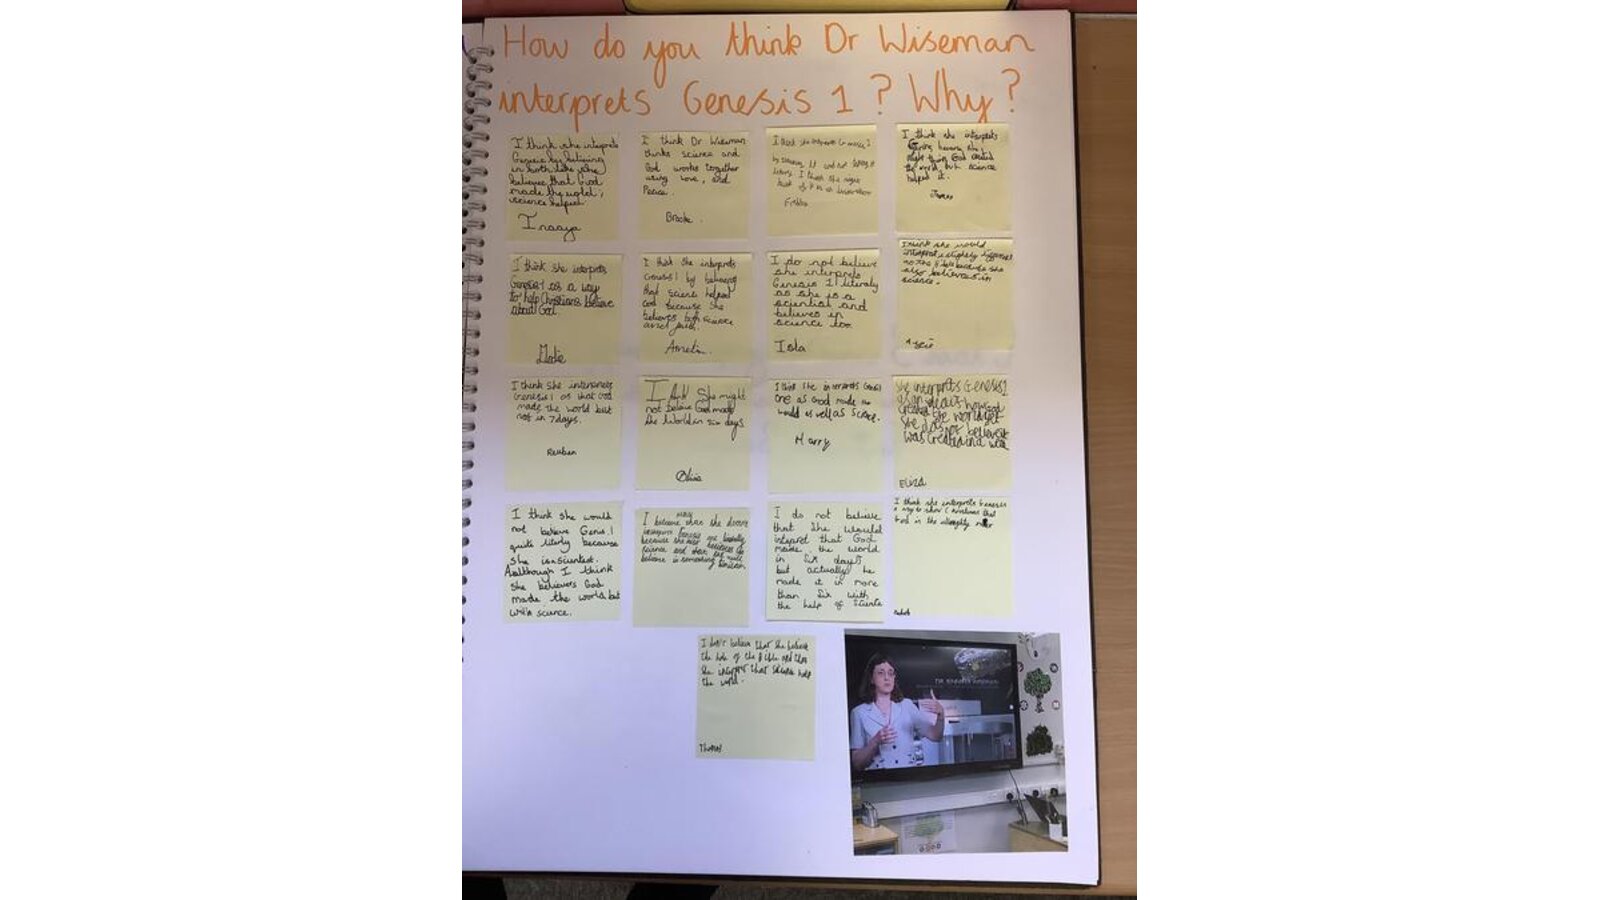 How do you think Dr Wiseman
interprets Genesis 1? Why?
I think she interprets
Genesis by believing
in both like she
believes that God
made the world,
science helped.
Inaaya
I think Dr Wiseman
thinks science and
God works together
using love, and
Peace.
Brooke.
I think she interprets Genesis 1
by it was not
I think she might
think of it as a
I think she interprets
might think God created
the world, but science
helped it.
I think she interprets
Genesis 1 as a way
to help Christians believe
about God.
I think she interprets
Genesis 1 by believing
that science helped
God because she
believes both science
and faith.
I do not believe
she interprets
Genesis 1 literaly
as she is a
scientist and
believes in
science too.
Isla
I think she would
interpret it slightly different
to the Bible because she
also believes in
science.
I think she interprets
Genesis 1 as that God
made the world but
not in 7 days.
Reuben
I think She might
not believe God made
the World in six days
Olivia
I think she interprets Genesis
one as God made the
world as well as Science.
Harry
She interprets Genesis 1
as an idea of how God
created the world yet
she does not believe it
was created in a week
Eliza
I think she would
not believe Genis.1
quite literly because
she is a Scientest.
Aalthough I think
she believers God
made the world but
with science.
I believe that she doesnt
Genesis one literally
because she believes in
science and
believe in something
I do not believe
that She would
intepret that God
made the world
in six days
but actually he
made it in more
than six with
the help of Science
I think she interprets Genesis
a way to show Christians that
God is the almighty
I don't believe that she believes
the hole of the Bible and that
she interpret that Science help
the world.
Thomas